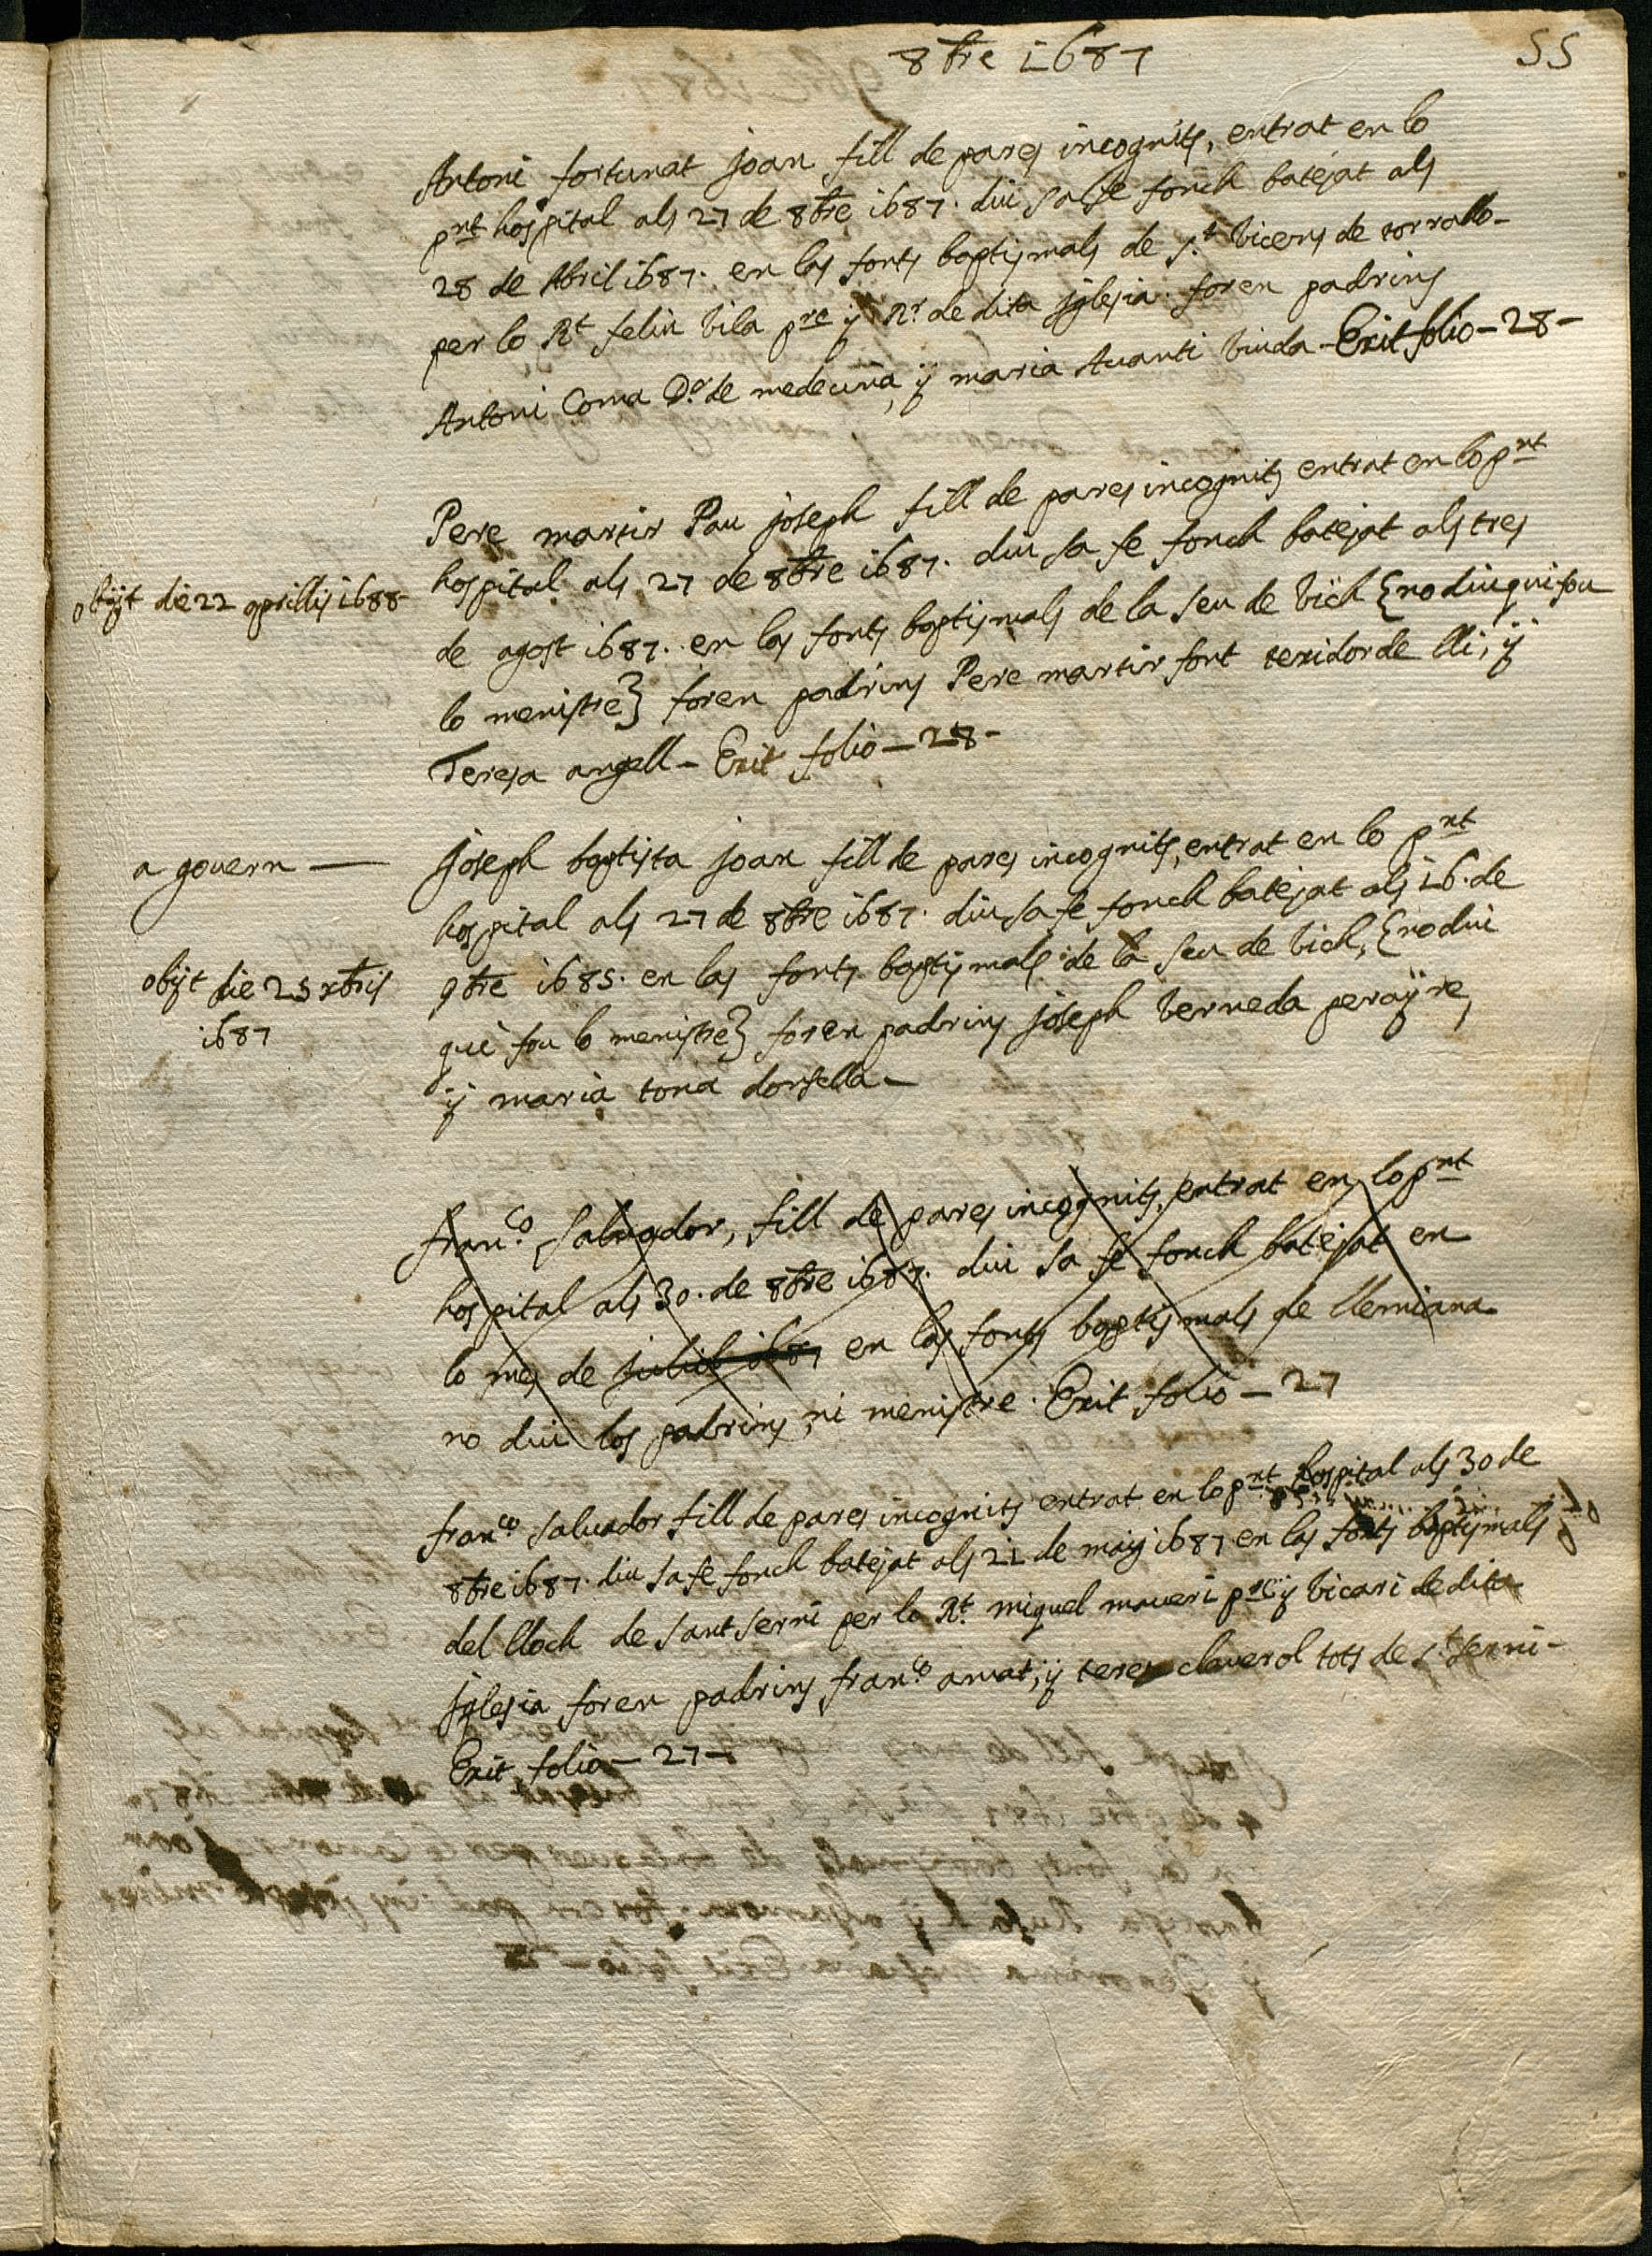 8bre 1687
55
Antoni fortunat joan fill de pares incognits, entrat en lo
pnt hospital als 27 de 8bre 1687. diu sa fe fonch batejat als
28 de Abril 1687. en las fonts baptismals de st. Vicens de torrallo-
per lo Rt feliu Vila pre y Rr de dita iglesia. foren padrins
Antoni Coma Dor de medecina, y maria Auanti Viuda - Exit folio - 28 -
Pere martir Pau joseph fill de pares incognits entrat en lo pnt
hospital als 27 de 8bre 1687. diu sa fe fonch batejat als tres
obijt die 22 aprillis 1688
de agost 1687. en las fonts baptismals de la seu de Vich {no diu qui fou
lo menistre} foren padrins Pere martir font texidor de lli, y
Teresa angell - Exit folio - 28 -
a govern —
joseph baptista joan fill de pares incognits, entrat en lo pnt
hospital als 27 de 8bre 1687. diu sa fe fonch batejat als 16. de
obijt die 25 xbris
1687
9bre 1685. en las fonts baptismals de la seu de Vich, {no diu
qui fou lo menistre} foren padrins joseph Verneda perayre,
y maria tona donsella -
franco. Salvador, fill de pares incognits, entrat en lo pnt
hospital als 30. de 8bre 1687. diu sa fe fonch batejat en
lo mes de juliol 1687 en las fonts baptismals de llemiana
no diu los padrins, ni menistre. Exit folio - 27
franco salvador fill de pares incognits entrat en lo pnt hospital als 30 de
8bre 1687. diu sa fe fonch batejat als 21 de maig 1687 en las fonts baptismals
del lloch de sant serni per lo Rt. miquel maveri pre y Vicari de dita
iglesia foren padrins franco. amat, y teresa claverol tots de st. serni -
Exit folio - 27 -